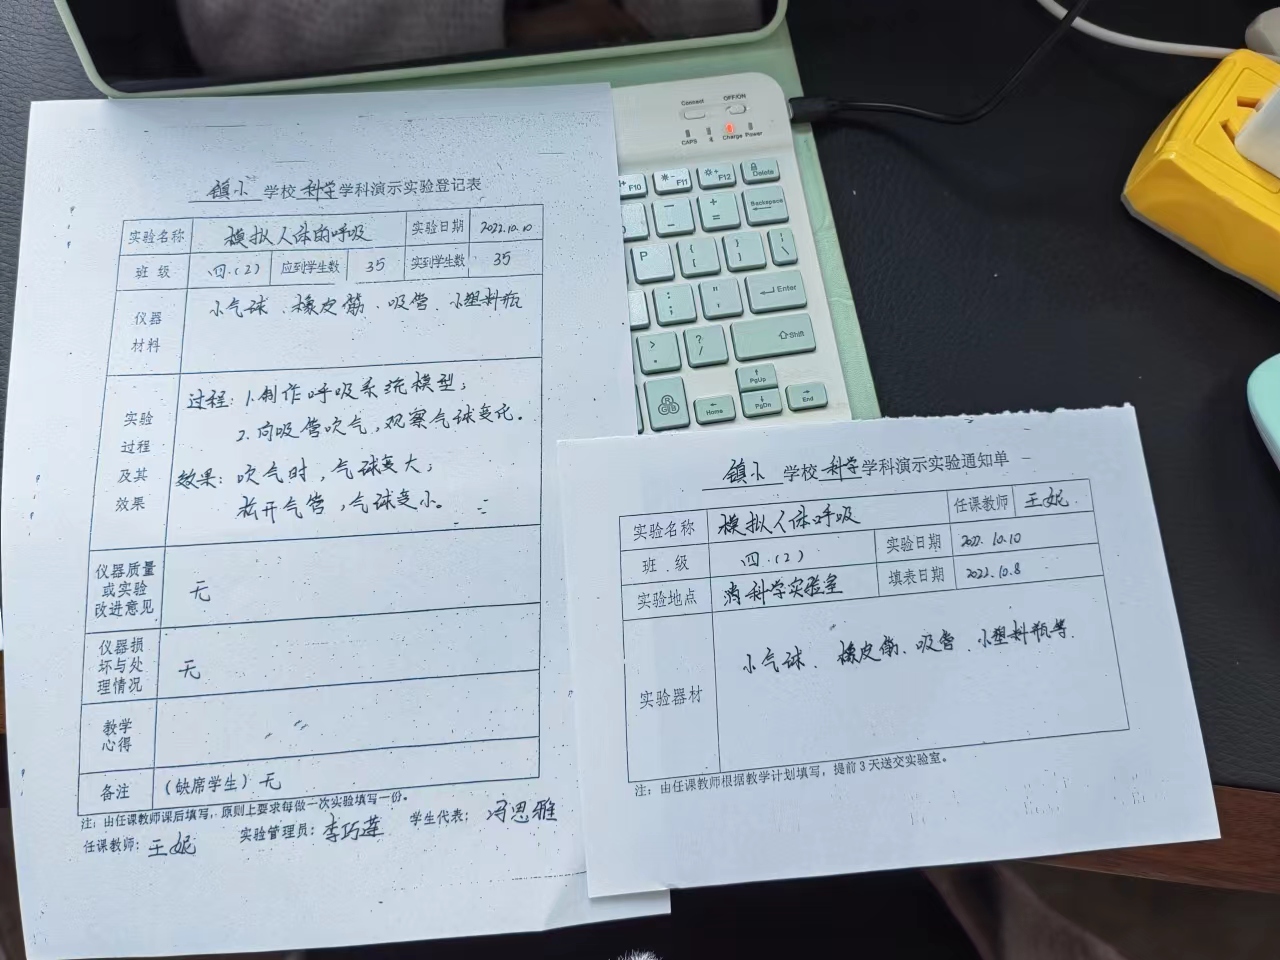 镇小 学校 科学 学科演示实验登记表
实验名称 模拟人体的呼吸 实验日期 2022.10.10
班 级 四.(2) 应到学生数 35 实到学生数 35
仪器
材料
小气球、橡皮筋、吸管、小塑料瓶
实验
过程
及其
效果
过程: 1.制作呼吸系统模型;
2.向吸管吹气,观察气球变化。
效果: 吹气时,气球变大;
松开气管,气球变小。
仪器质量
或实验
改进意见
无
仪器损
坏与处
理情况
无
教学
心得
备注 (缺席学生) 无
注:由任课教师课后填写,原则上要求每做一次实验填写一份。
任课教师: 王妮 实验管理员: 李巧莲 学生代表: 冯思雅
镇小 学校 科学 学科演示实验通知单
实验名称 模拟人体呼吸 任课教师 王妮.
班 级 四.(2) 实验日期 2022.10.10
实验地点 科学实验室 填表日期 2022.10.8
实验器材 小气球、橡皮筋、吸管、小塑料瓶等.
注:由任课教师根据教学计划填写,提前3天送交实验室。
Connect OFF/ON
CAPS Charge Power
F10 F11 F12 Delete
Backspace
P
Enter
Shift
PgUp
Home PgDn End